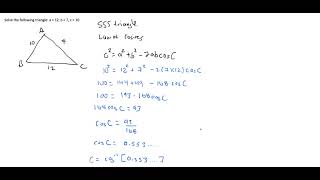 Solve the following triangle: a = 12, b = 7, c = 10
A
10
B
12
C
SSS triangle
Law of cosines
c² = a² + b² - 2abcosC
10² = 12² + 7² - 2(7)(12)cosC
100 = 144+49 - 168 cosC
100 = 193 - 168cosC
168cosC = 93
cosC = 93
168
cosC = 0.553...
C = cos⁻¹[0.553...]